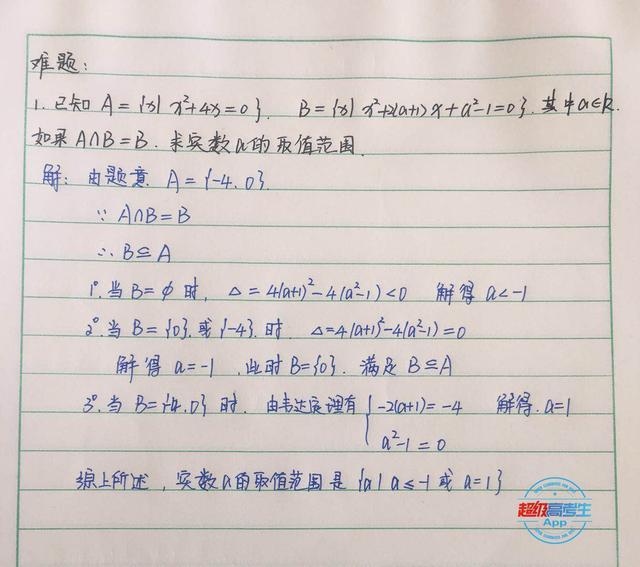 难题:
1. 已知 A={x| x²+4x=0}. B={x| x²+2(a+1)x+a²-1=0}. 其中a∈R.
如果 A∩B=B. 求实数a的取值范围.
解: 由题意. A={-4.0}.
∵ A∩B=B
∴ B⊆A
1°. 当 B=∅ 时. Δ=4(a+1)²-4(a²-1)<0 解得 a<-1
2°. 当 B={0}. 或 {-4}. 时. Δ=4(a+1)²-4(a²-1)=0
解得 a=-1 .此时 B={0}. 满足 B⊆A
3°. 当 B={-4.0} 时. 由韦达定理有 { -2(a+1)=-4 解得. a=1
a²-1=0
综上所述, 实数a的取值范围是 {a| a≤-1 或 a=1}
超级高考生
App